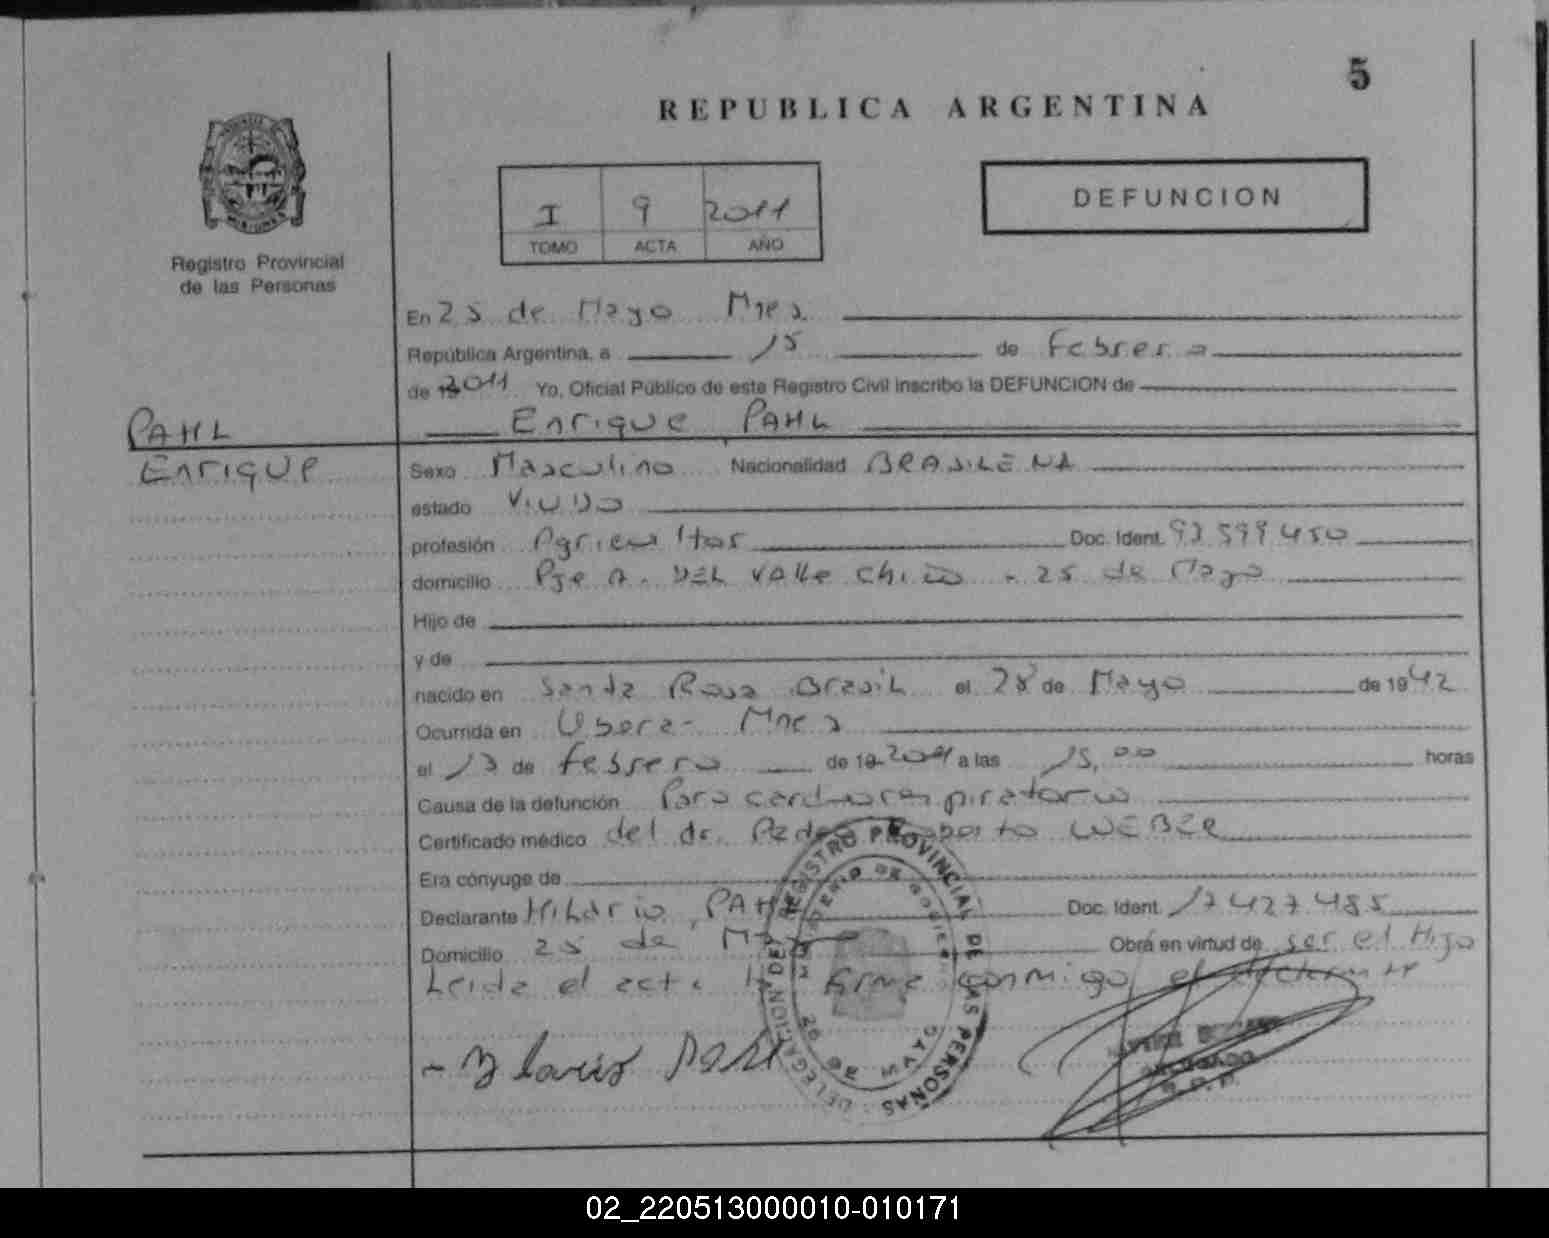 5
REPUBLICA ARGENTINA
I 9 2011
TOMO ACTA AÑO
DEFUNCION
Registro Provincial
de las Personas
En 25 de Mayo Mnes
República Argentina, a 15 de Febrero
de 19 2011 Yo, Oficial Público de este Registro Civil inscribo la DEFUNCION de
PAHL
Enrique PAHL
Enrique
Sexo Masculino Nacionalidad BRASILEÑA
estado Viudo
profesión Agricultor Doc. Ident. 92.599.450
domicilio Pje A. DEL VALLE Chico - 25 de Mayo
Hijo de
y de
nacido en Santa Rosa Brasil el 28 de Mayo de 1942
Ocurrida en Obera - Mnes
el 13 de febrero de 19 2011 a las 15,00 horas
Causa de la defunción Paro cardiorespiratorio
Certificado médico del dr. Pedro Roberto WEBER
Era cónyuge de
Declarante Hilario PAHL Doc. Ident. 17.427.485
Domicilio 25 de Mayo Obra en virtud de ser el Hijo
Leida el acta la firma conmigo el declarante
REGISTRO PROVINCIAL DE LAS PERSONAS
DELEGACION DE
25 DE MAYO
02_220513000010-010171